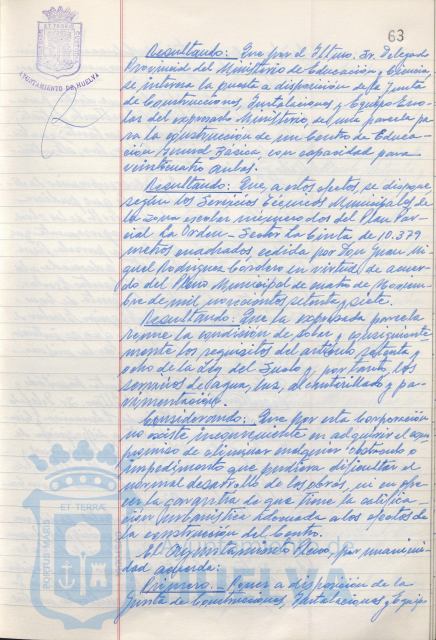 63
AYUNTAMIENTO DE HUELVA
Resultando: Que por el Iltmo. Sr. Delegado
Provincial del Ministerio de Educación y Ciencia,
se interesa la puesta a disposición de la Junta
de Construcciones, Instalaciones y Equipo Esco-
lar del expresado Ministerio, de una parcela pa
ra la construcción de un Centro de Educa-
ción General Básica, con capacidad para
veinticuatro aulas.
Resultando: Que, a estos efectos, se dispone,
según los Servicios Técnicos Municipales, de
la zona escolar número dos del Plan Par-
cial La Orden - Sector La Cinta, de 10.379
metros cuadrados cedida por Don Juan Mi-
guel Rodríguez Cordero en virtud de acuer-
do del Pleno Municipal de cuatro de Noviem-
bre de mil novecientos setenta y siete.
Resultando: Que la expresada parcela
reúne la condición de solar y consiguiente-
mente los requisitos del artículo setenta y
ocho de la Ley del Suelo y, por tanto, los
servicios de agua, luz, alcantarillado y pa-
vimentación.
Considerando: Que por esta Corporación
no existe inconveniente en adquirir el com
promiso de eliminar cualquier obstáculo o
impedimento que pudiera dificultar el
normal desarrollo de las obras, ni en ofre
cer la garantía de que tiene la califica
ción urbanística adecuada a los efectos de
la construcción del Centro.
El Ayuntamiento Pleno, por unanimi-
dad acuerda:
Primero: Poner a disposición de la
Junta de Construcciones, Instalaciones y Equipo
ET TERRÆ
HUELVA